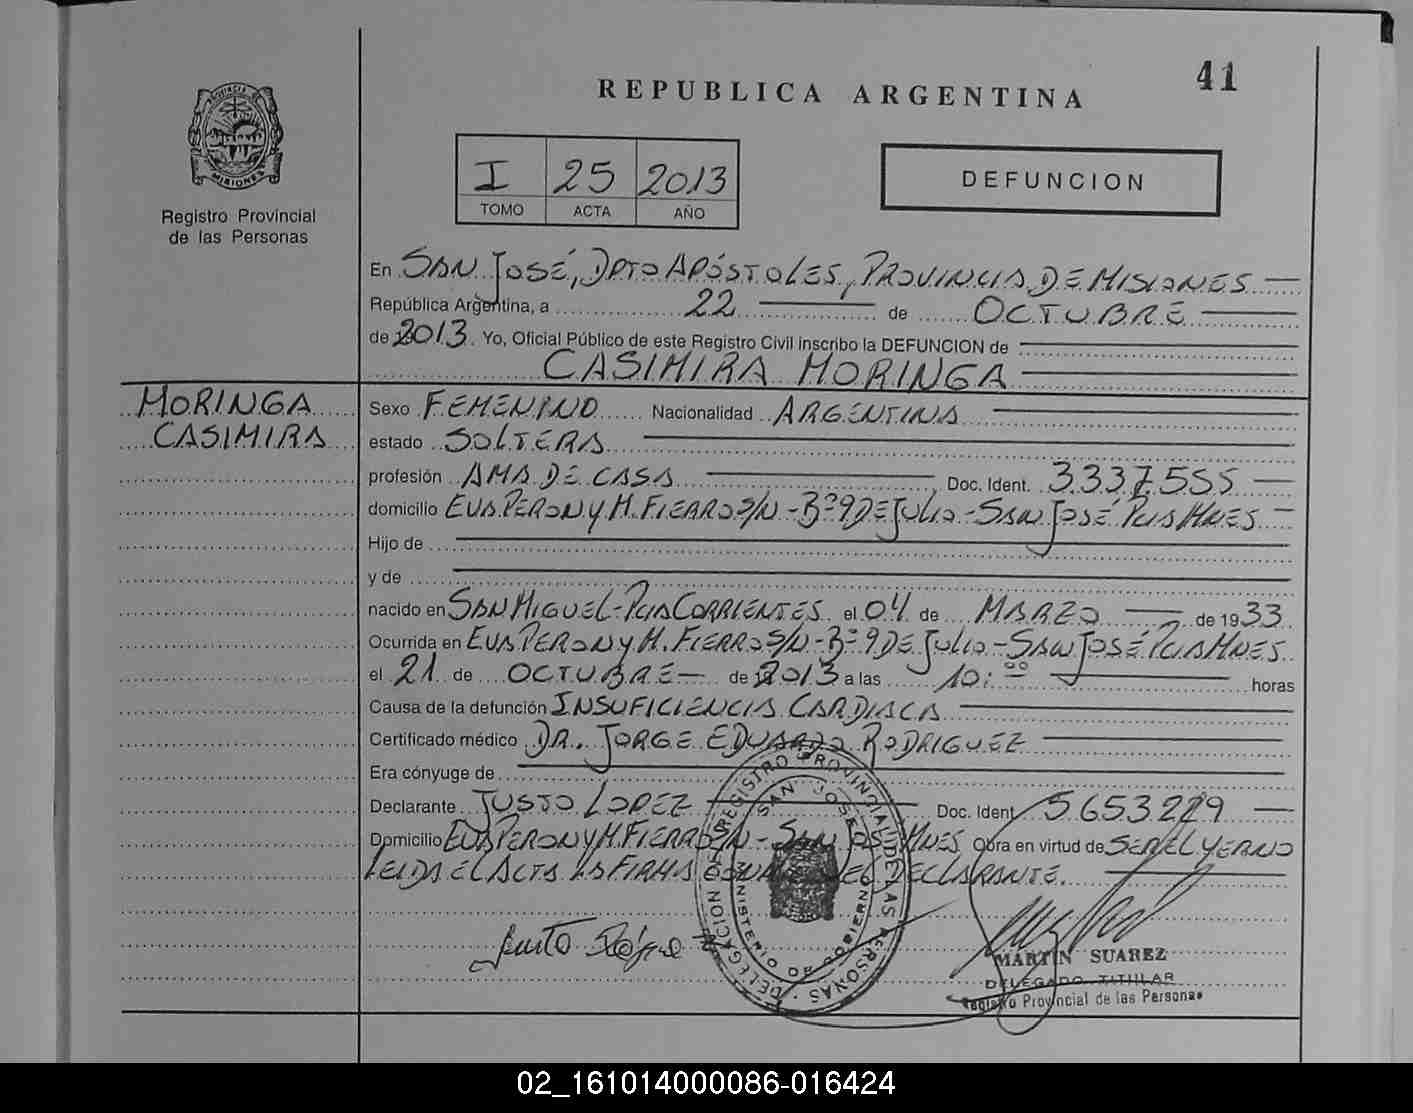 41
REPUBLICA ARGENTINA
PROVINCIA DE
MISIONES
Registro Provincial
de las Personas
I 25 2013
TOMO ACTA AÑO
DEFUNCION
En SAN JOSÉ, DPTO APÓSTOLES, PROVINCIA DE MISIONES
República Argentina, a 22 de OCTUBRE
de 2013. Yo, Oficial Público de este Registro Civil inscribo la DEFUNCION de
CASIMIRA MORINGA
MORINGA
CASIMIRA
Sexo FEMENINO Nacionalidad ARGENTINA
estado SOLTERA
profesión AMA DE CASA Doc. Ident. 3.337.555
domicilio EVA PERON Y M. FIERRO S/N - Bº 9 DE JULIO - SAN JOSÉ PCIA MNES
Hijo de
y de
nacido en SAN MIGUEL - PCIA CORRIENTES el 04 de MARZO de 1933
Ocurrida en EVA PERON Y M. FIERRO S/N - Bº 9 DE JULIO - SAN JOSÉ PCIA MNES
el 21 de OCTUBRE de 2013 a las 10:00 horas
Causa de la defunción INSUFICIENCIA CARDIACA
Certificado médico DR. JORGE EDUARDO RODRIGUEZ
Era cónyuge de
Declarante JUSTO LOPEZ Doc. Ident. 5.653.229
Domicilio EVA PERON Y M. FIERRO S/N - SAN JOSÉ MNES Obra en virtud de SER EL YERNO
LEIDA EL ACTA LA FIRMA EL DECLARANTE.
DELEGACION DEL REGISTRO PROVINCIAL DE LAS PERSONAS
SAN JOSE
MINISTERIO DE GOBIERNO
MARTIN SUAREZ
DELEGADO TITULAR
Registro Provincial de las Personas
02_161014000086-016424